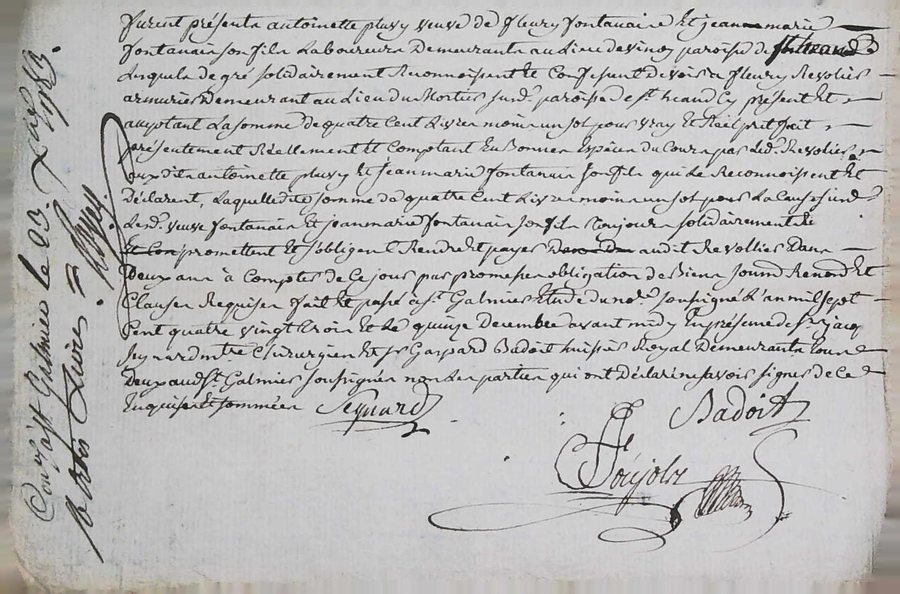 furent présents antoinette pluvy veuve de fleury fontanair Et jean marie
fontanair son fils Laboureurs Demeurants au Lieu de vinoy paroisse de
Lesquels de gré solidairement Reconnoissent Et Confessent Devoir a fleury Revolier
armurier Demeurant au Lieu du Mortier susd. paroisse de st heand Cy présent Et
acceptant La somme de quatre Cent Livres moins un sol pour vray Et Réel prêt fait
présentement Réellement Et Comptant En Bonnes Espèces du Cours par Led. Revolier
auxdits antoinette pluvy Et Jean marie fontanair son fils qui Le Reconnoissent Et
Déclarent, Laquelle dite somme de quatre Cent Livres moins un sol pour La Cause susd.
Lesd. veuve fontanair Et jean marie fontanair son fils toujours solidairement
promettent Et s'obligent Rendre Et payer audit Revollier Dans
Deux ans à Compter de Ce jour par promesse obligation de Biens soumis Renond. Et
Clauses Requises fait Et passé a st Galmier Etude du nore. soussigné L'an mil sept
Cent quatre vingt trois Et Le quinze Decembre avant midy En présence de sr. jacq
Seynard mtre Chirurgien Et sr Gaspard Badoit huissier Royal Demeurants tous
Deux aud. st. Galmier soussignés non Les parties qui ont Déclaré ne savoir signer de Ce
Enquises Et sommées Seynard
Badoit
Soujols
Con. a st Galmier le 23 Xbre 1783.
Livres